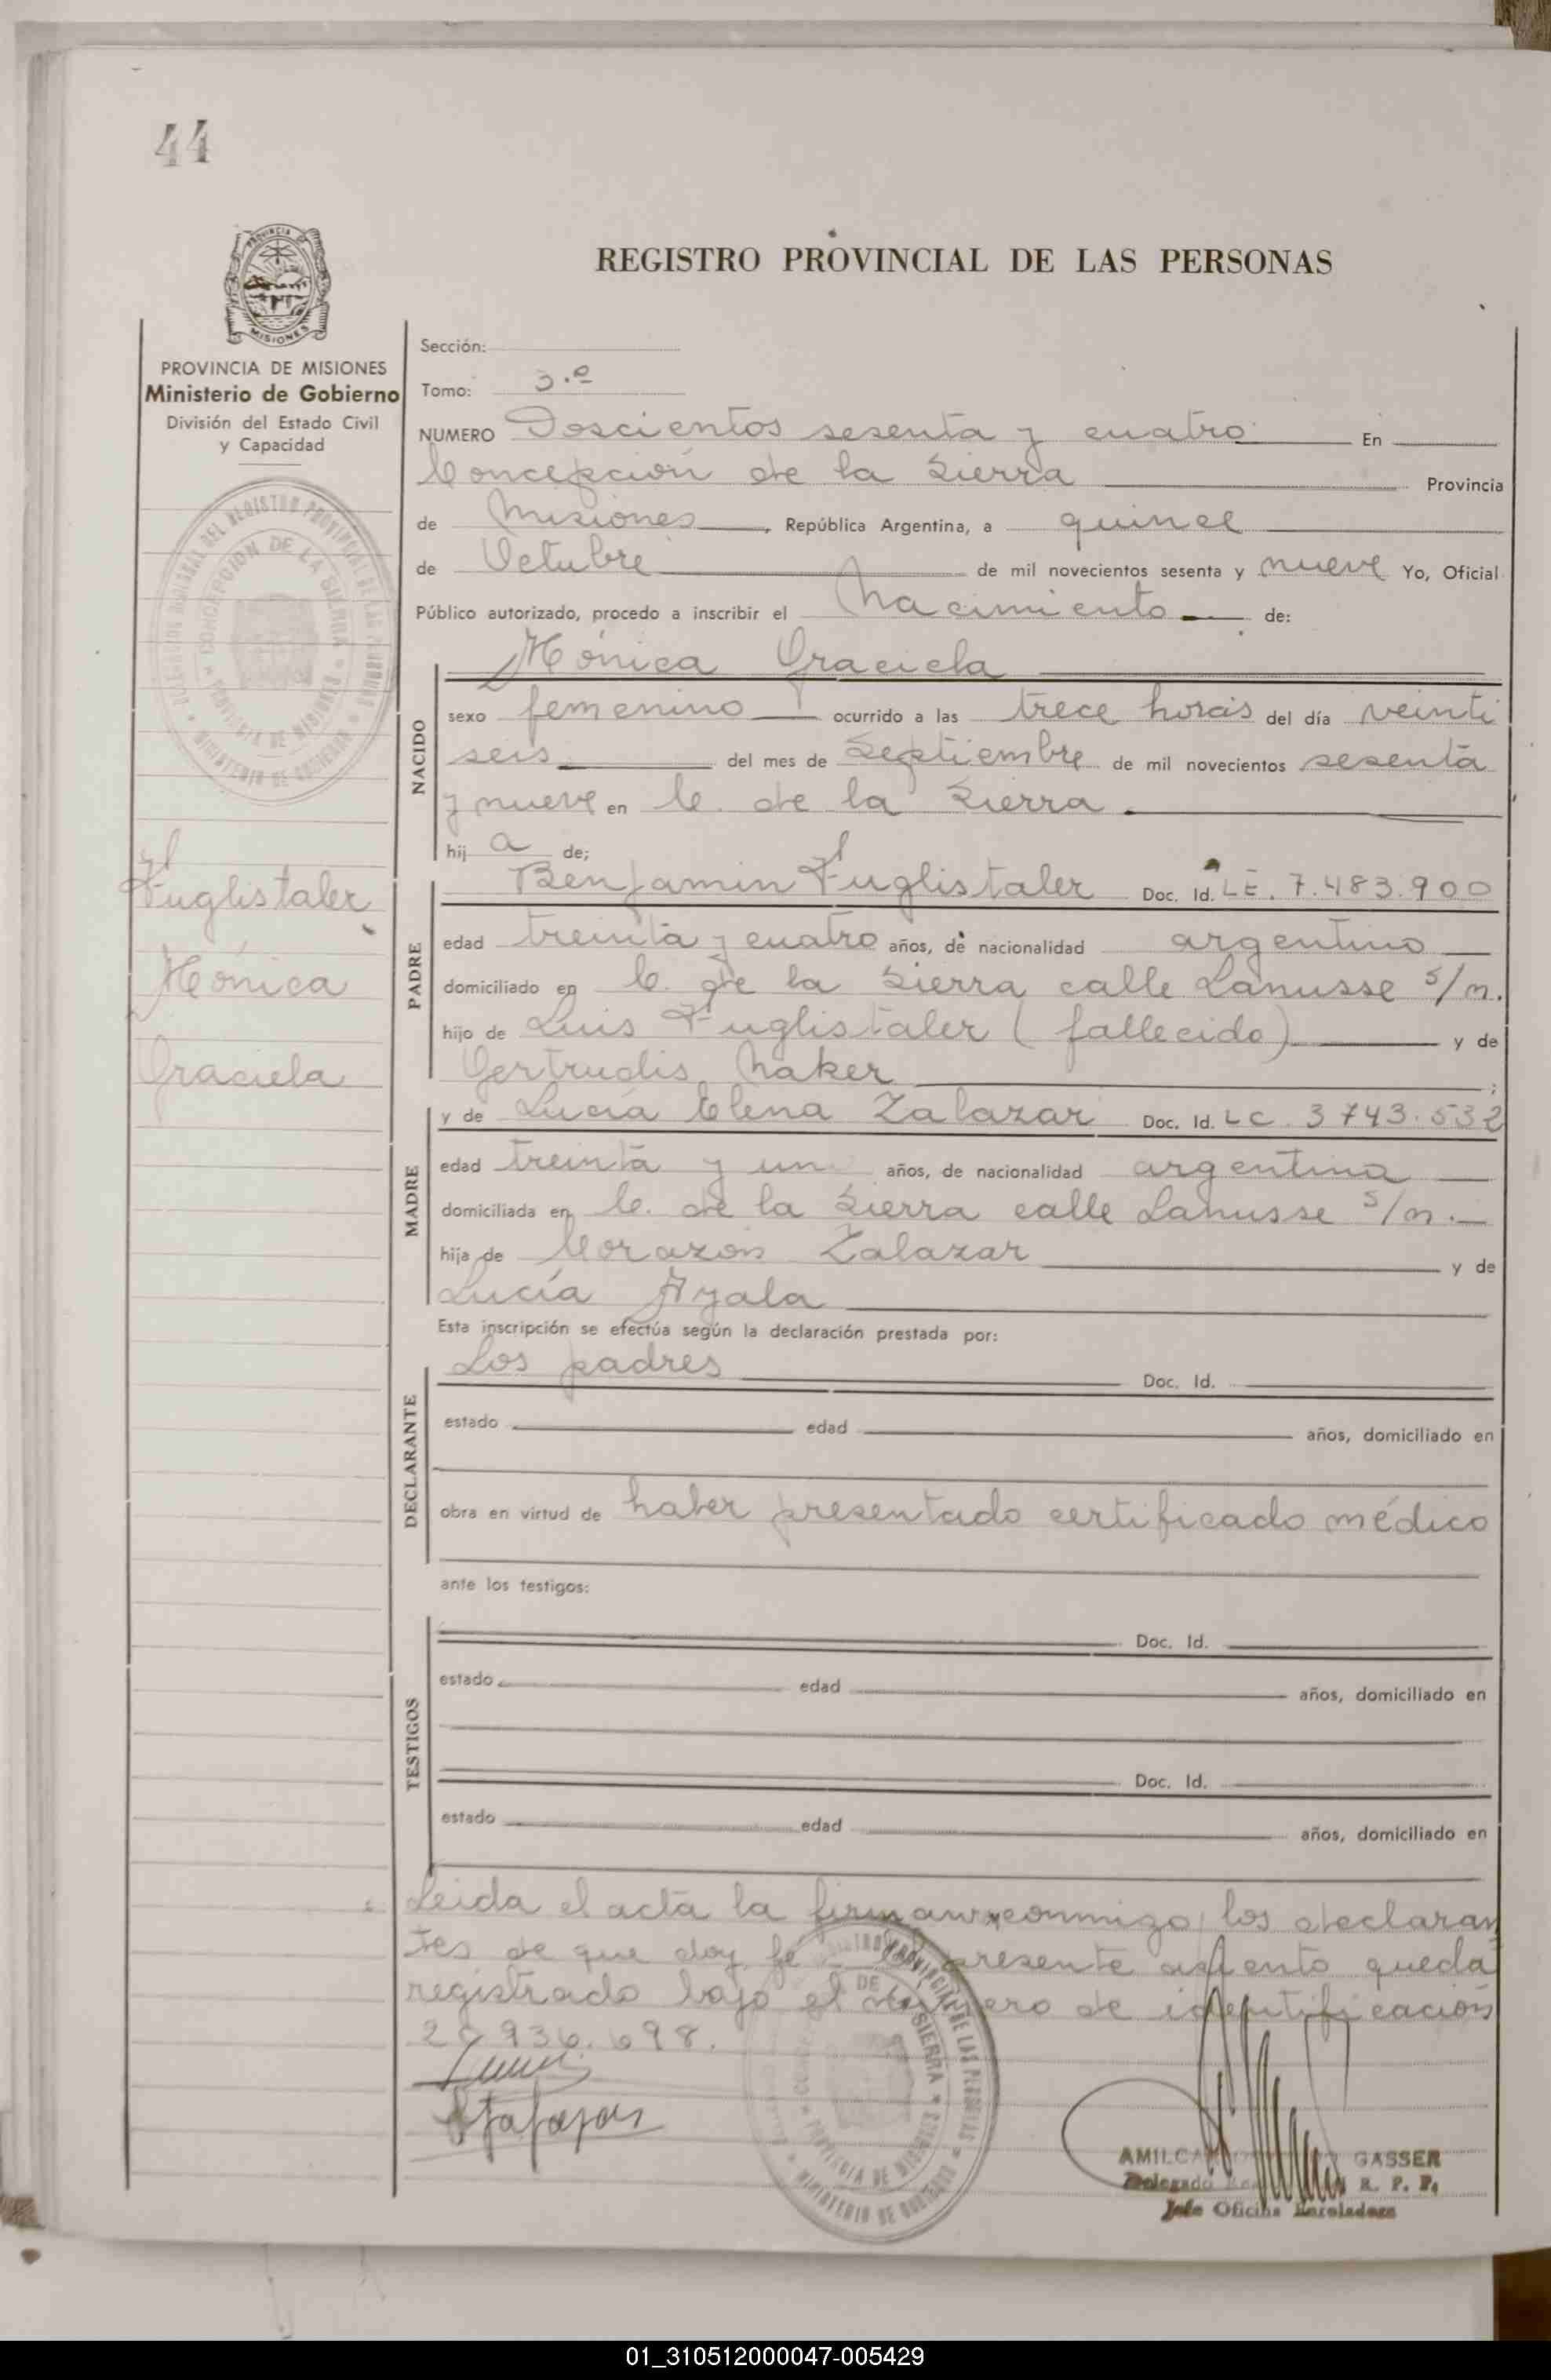 44
PROVINCIA
MISIONES
REGISTRO PROVINCIAL DE LAS PERSONAS
PROVINCIA DE MISIONES
Ministerio de Gobierno
División del Estado Civil
y Capacidad
Sección:
Tomo: 3.º
NUMERO Doscientos sesenta y cuatro En
Concepción de la Sierra Provincia
de Misiones, República Argentina, a quince
de Octubre de mil novecientos sesenta y nueve Yo, Oficial
Público autorizado, procedo a inscribir el Nacimiento de:
NACIDO
Mónica Graciela
sexo femenino ocurrido a las trece horas del día veinti
seis del mes de Septiembre de mil novecientos sesenta
y nueve en C. de la Sierra.
hij a de;
Fuglistaler
Mónica
Graciela
PADRE
Benjamin Fuglistaler Doc. Id. LE. 7.483.900
edad treinta y cuatro años, de nacionalidad argentino
domiciliado en C. de la Sierra calle Lanusse s/n.
hijo de Luis Fuglistaler (fallecido) y de
Gertrudis Naker ;
MADRE
y de Lucía Elena Zalazar Doc. Id. LC. 3743.532
edad treinta y un años, de nacionalidad argentina
domiciliada en C. de la Sierra calle Lanusse s/n.
hija de Corazón Zalazar y de
Lucía Ayala
Esta inscripción se efectúa según la declaración prestada por:
DECLARANTE
Los padres Doc. Id.
estado edad años, domiciliado en
obra en virtud de haber presentado certificado médico
ante los testigos:
TESTIGOS
Doc. Id.
estado edad años, domiciliado en
Doc. Id.
estado edad años, domiciliado en
Leida el acta la firman conmigo los declaran
tes de que doy fé presente asiento queda
registrado bajo el número de identificación
936.698.
REGISTRO PROVINCIAL DE LAS PERSONAS
CONCEPCION DE LA SIERRA
PROVINCIA DE MISIONES
MINISTERIO DE GOBIERNO
GASSER
Delegado R. P. P.
Jefe Oficina Enroladora
01_310512000047-005429